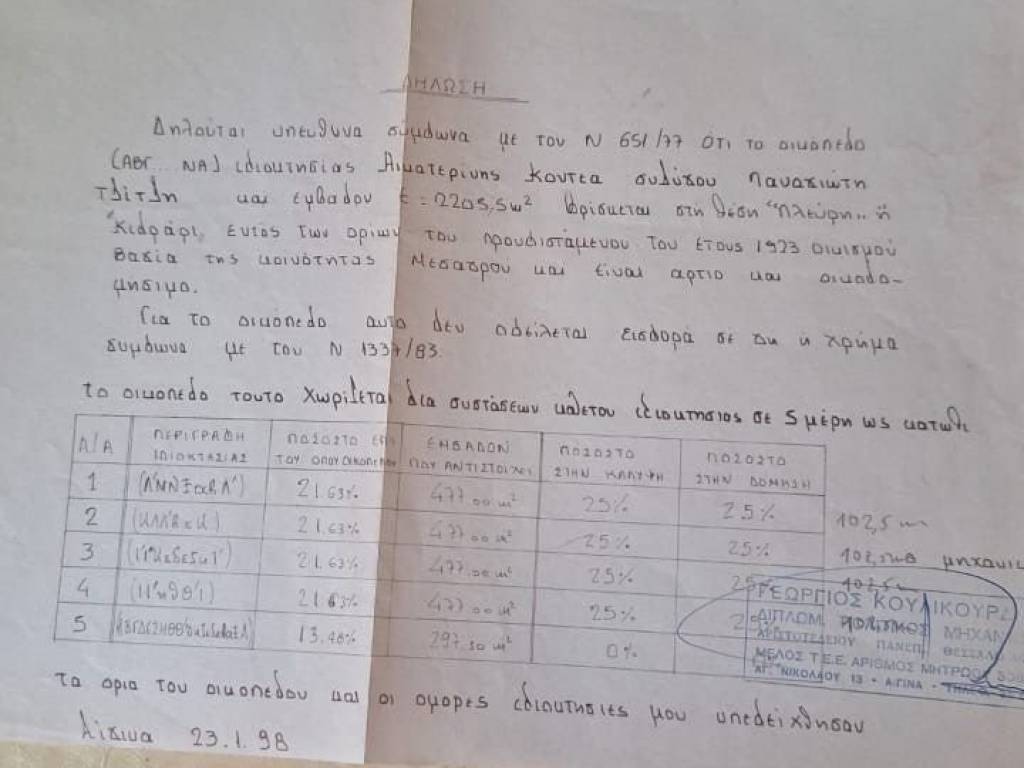 ΔΗΛΩΣΗ
Δηλούται υπευθυνα σύμφωνα με τον Ν 651/77 ότι το οικοπεδο
(ΑΒΓ... ΝΑ) ιδιοκτησίας Αικατερίνης Κουτεα συζύγου Παναγιώτη
και εμβαδου Ε = 2205,5 m² βρίσκεται στη θέση "Πλεύρη" ή
Κιθφάρι, εντος των ορίων του προυφισταμενου του έτους 1923 οικισμού
Βαθια της κοινότητας Μεσαγρού και είναι αρτιο και οικοδο-
μήσιμο.
Για το οικόπεδο αυτο δεν οφείλεται εισφορά σε γη ή χρήμα
συμφωνα με τον Ν 1337/83.
το οικοπεδο τουτο χωρίζεται δια συστάσεων καθετου ιδιοκτησιας σε 5 μέρη ως κατωθι
Α/Α ΠΕΡΙΓΡΑΦΗ ΙΔΙΟΚΤΑΣΙΑΣ ΠΟΣΟΣΤΟ ΕΠΙ ΤΟΥ ΟΛΟΥ ΟΙΚΟΠΕΔΟΥ ΕΜΒΑΔΟΝ ΠΟΥ ΑΝΤΙΣΤΟΙΧΕΙ ΠΟΣΟΣΤΟ ΣΤΗΝ ΚΑΛΥΨΗ ΠΟΣΟΣΤΟ ΣΤΗΝ ΔΟΜΗΣΗ
1 21.63% 477.00 m² 25% 25% 102,5 m
2 21.63% 477.00 m² 25% 25%
3 21.63% 477.00 m² 25% 102,5 m
4 21.63% 477.00 m² 25%
5 13.48% 297.50 m² 0%
ΓΕΩΡΓΙΟΣ ΚΟΥΛΙΚΟΥΡΔ
ΔΙΠΛΩΜ. ΠΟΛΙΤΙΚΟΣ ΜΗΧΑΝ
ΑΡΙΣΤΟΤΕΛΕΙΟΥ ΠΑΝΕΠ. ΘΕΣΣΑΛ
ΜΕΛΟΣ Τ.Ε.Ε. ΑΡΙΘΜΟΣ ΜΗΤΡΩΟΥ
ΑΓ. ΝΙΚΟΛΑΟΥ 13 - ΑΙΓΙΝΑ -
Τα ορια του οικοπέδου και οι ομορες ιδιοκτησιες μου υπεδείχθησαν
Αίγινα 23.1.98